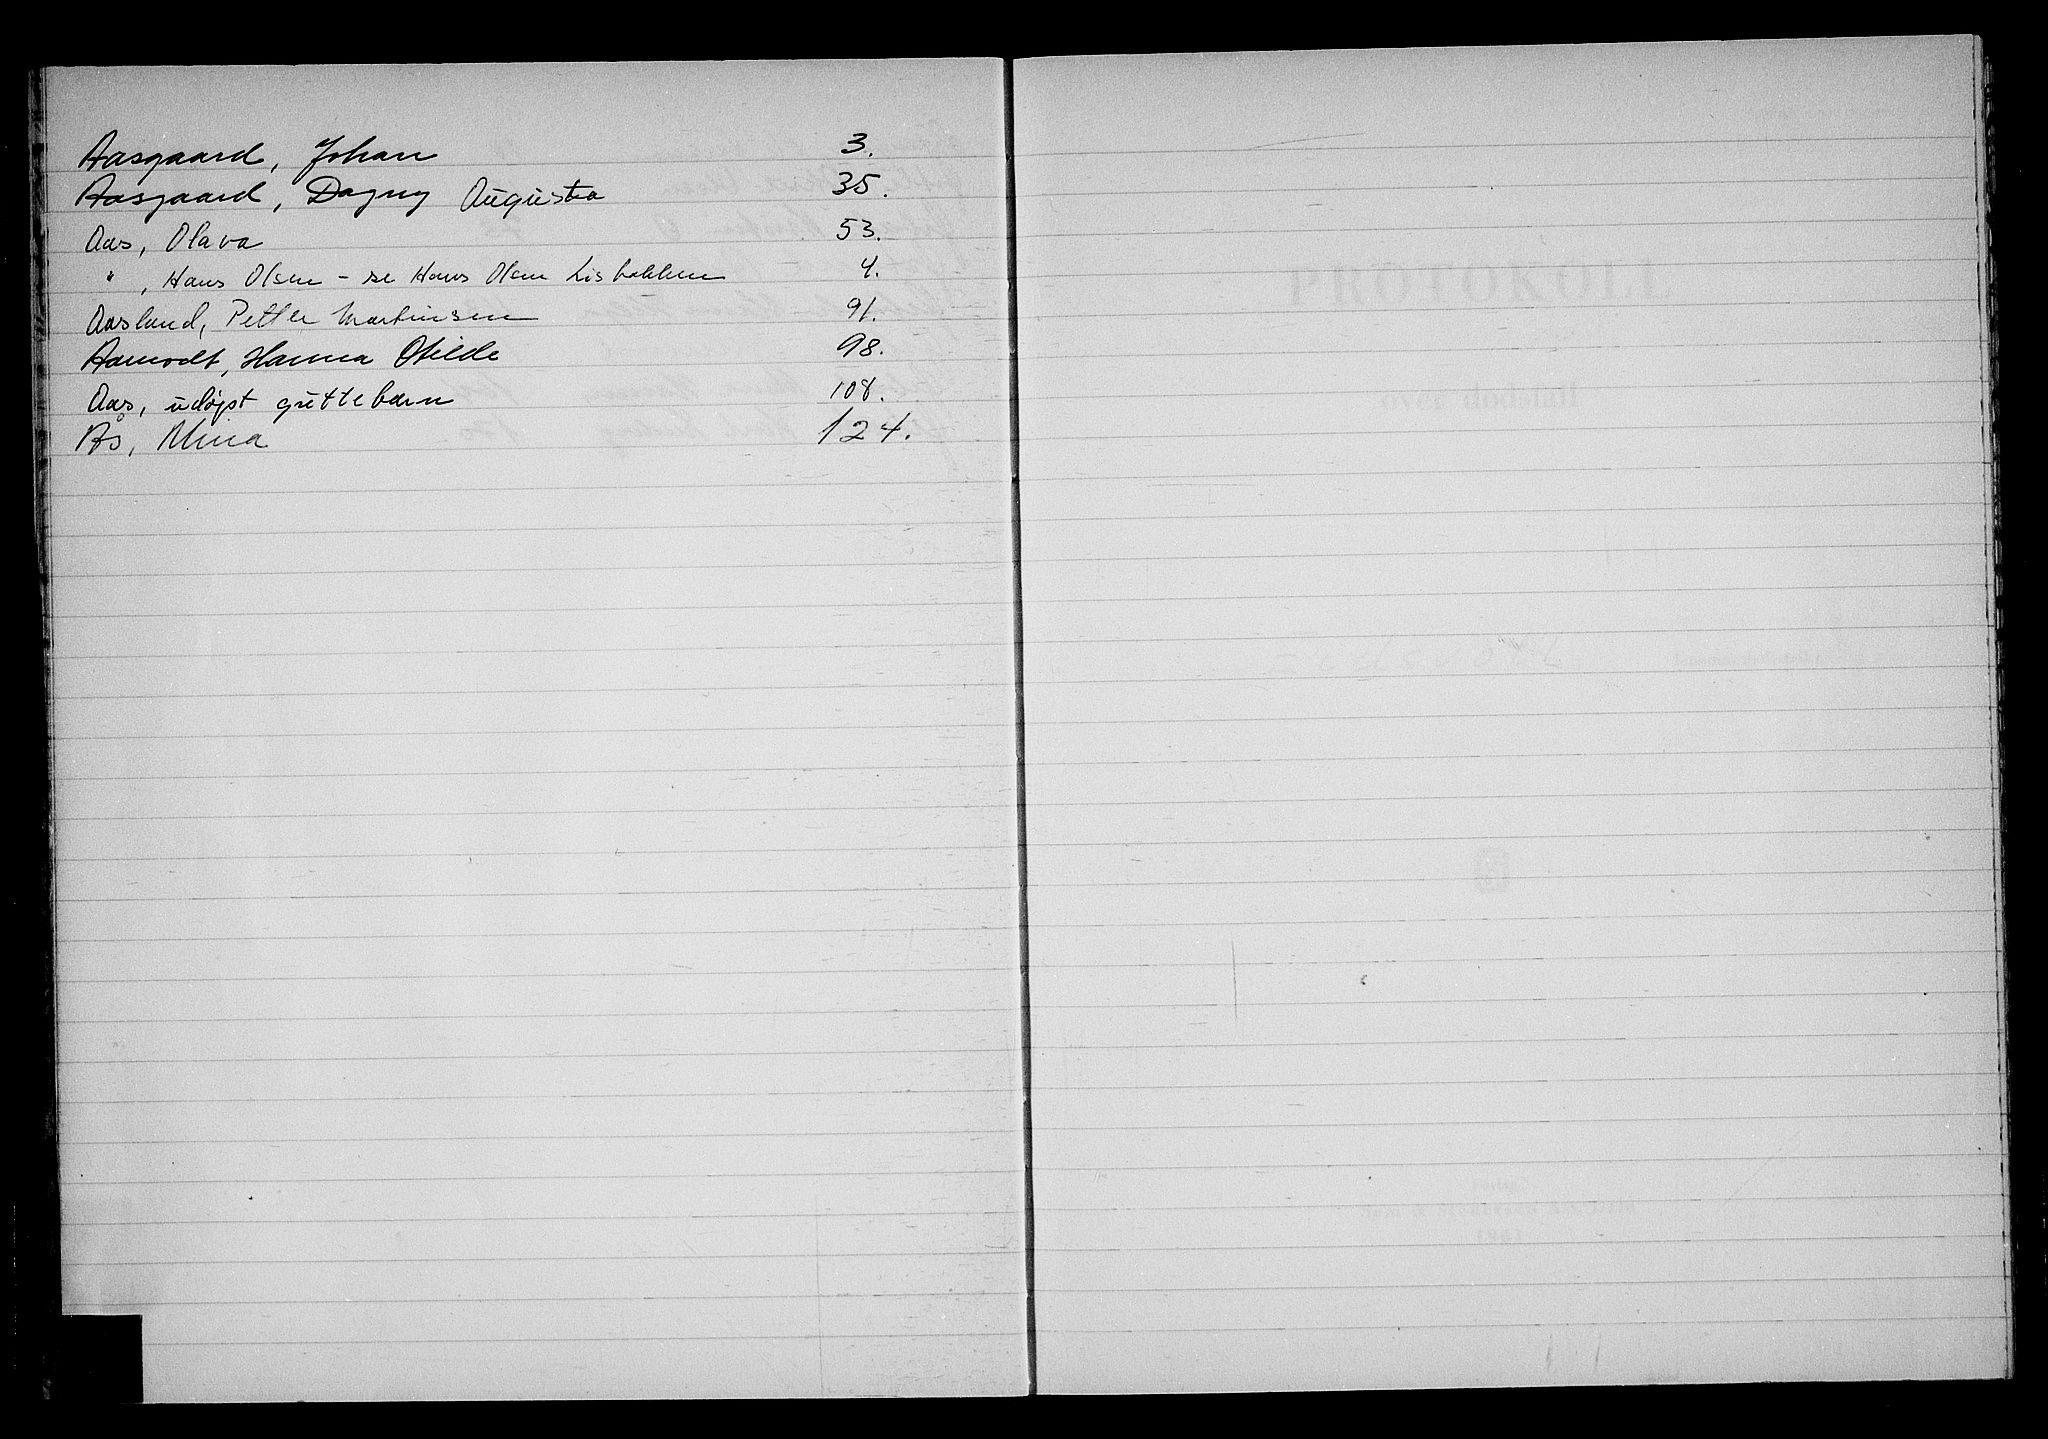 Aasgaard, Johan 3.
Aasgaard, Dagny Augusta 35.
Aas, Olava 53.
" , Hans Olsen - se Hans Olsen Lisbakken 4.
Aasland, Petter Martinsen 91.
Aamodt, Hanna Otilde 98.
Aas, udøpt guttebarn 108.
Ås, Mina 124.
PROTOKOLL
over dødsfall